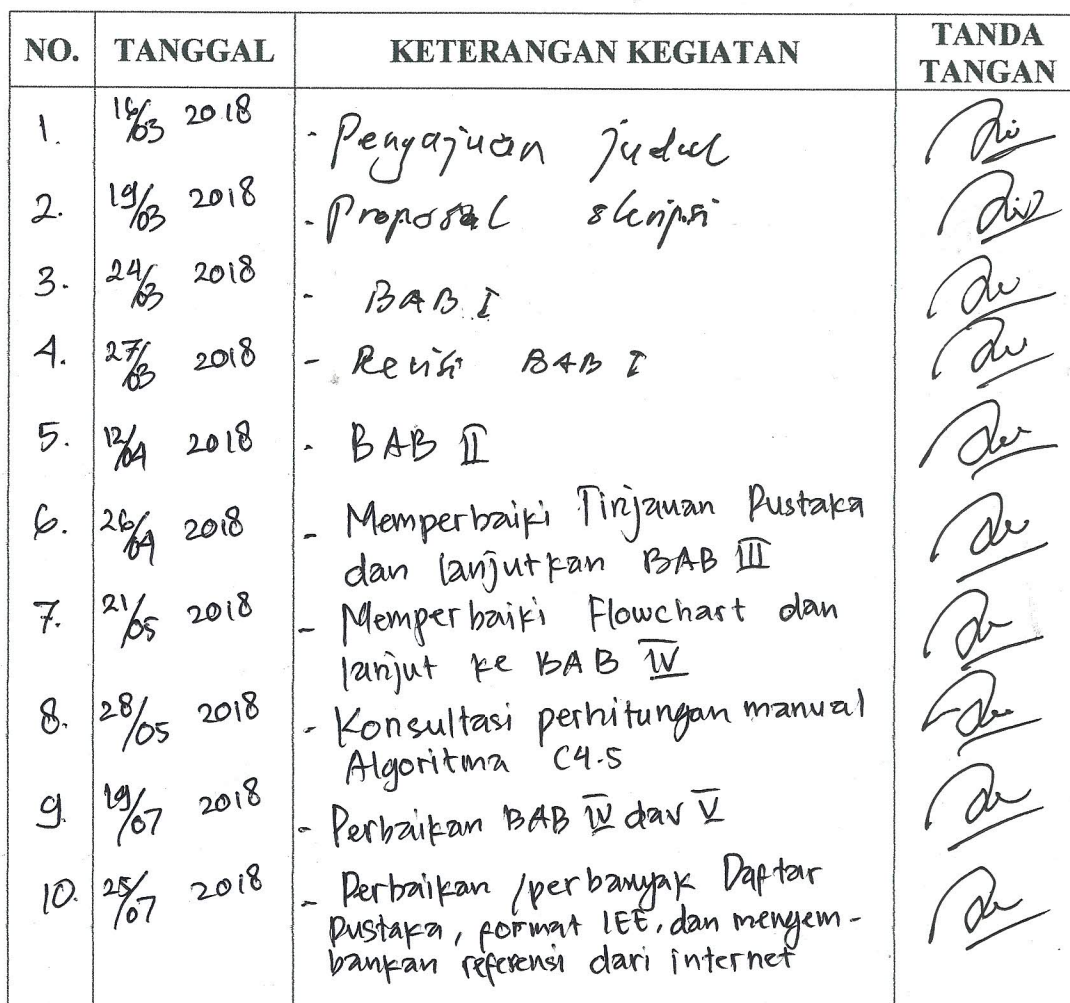 NO. TANGGAL KETERANGAN KEGIATAN TANDA TANGAN
1. 16/03 2018 - Pengajuan judul
2. 19/03 2018 - Proposal skripsi
3. 24/03 2018 - BAB I
4. 27/03 2018 - Revisi BAB I
5. 12/04 2018 - BAB II
6. 26/04 2018 - Memperbaiki Tinjauan Pustaka
dan lanjutkan BAB III
7. 21/05 2018 - Memperbaiki Flowchart dan
lanjut ke BAB IV
8. 28/05 2018 - Konsultasi perhitungan manual
Algoritma C4.5
9. 19/07 2018 - Perbaikan BAB IV dan V
10. 25/07 2018 - Perbaikan /perbanyak Daftar
Pustaka, format IEE, dan mengem-
bankan referensi dari internet